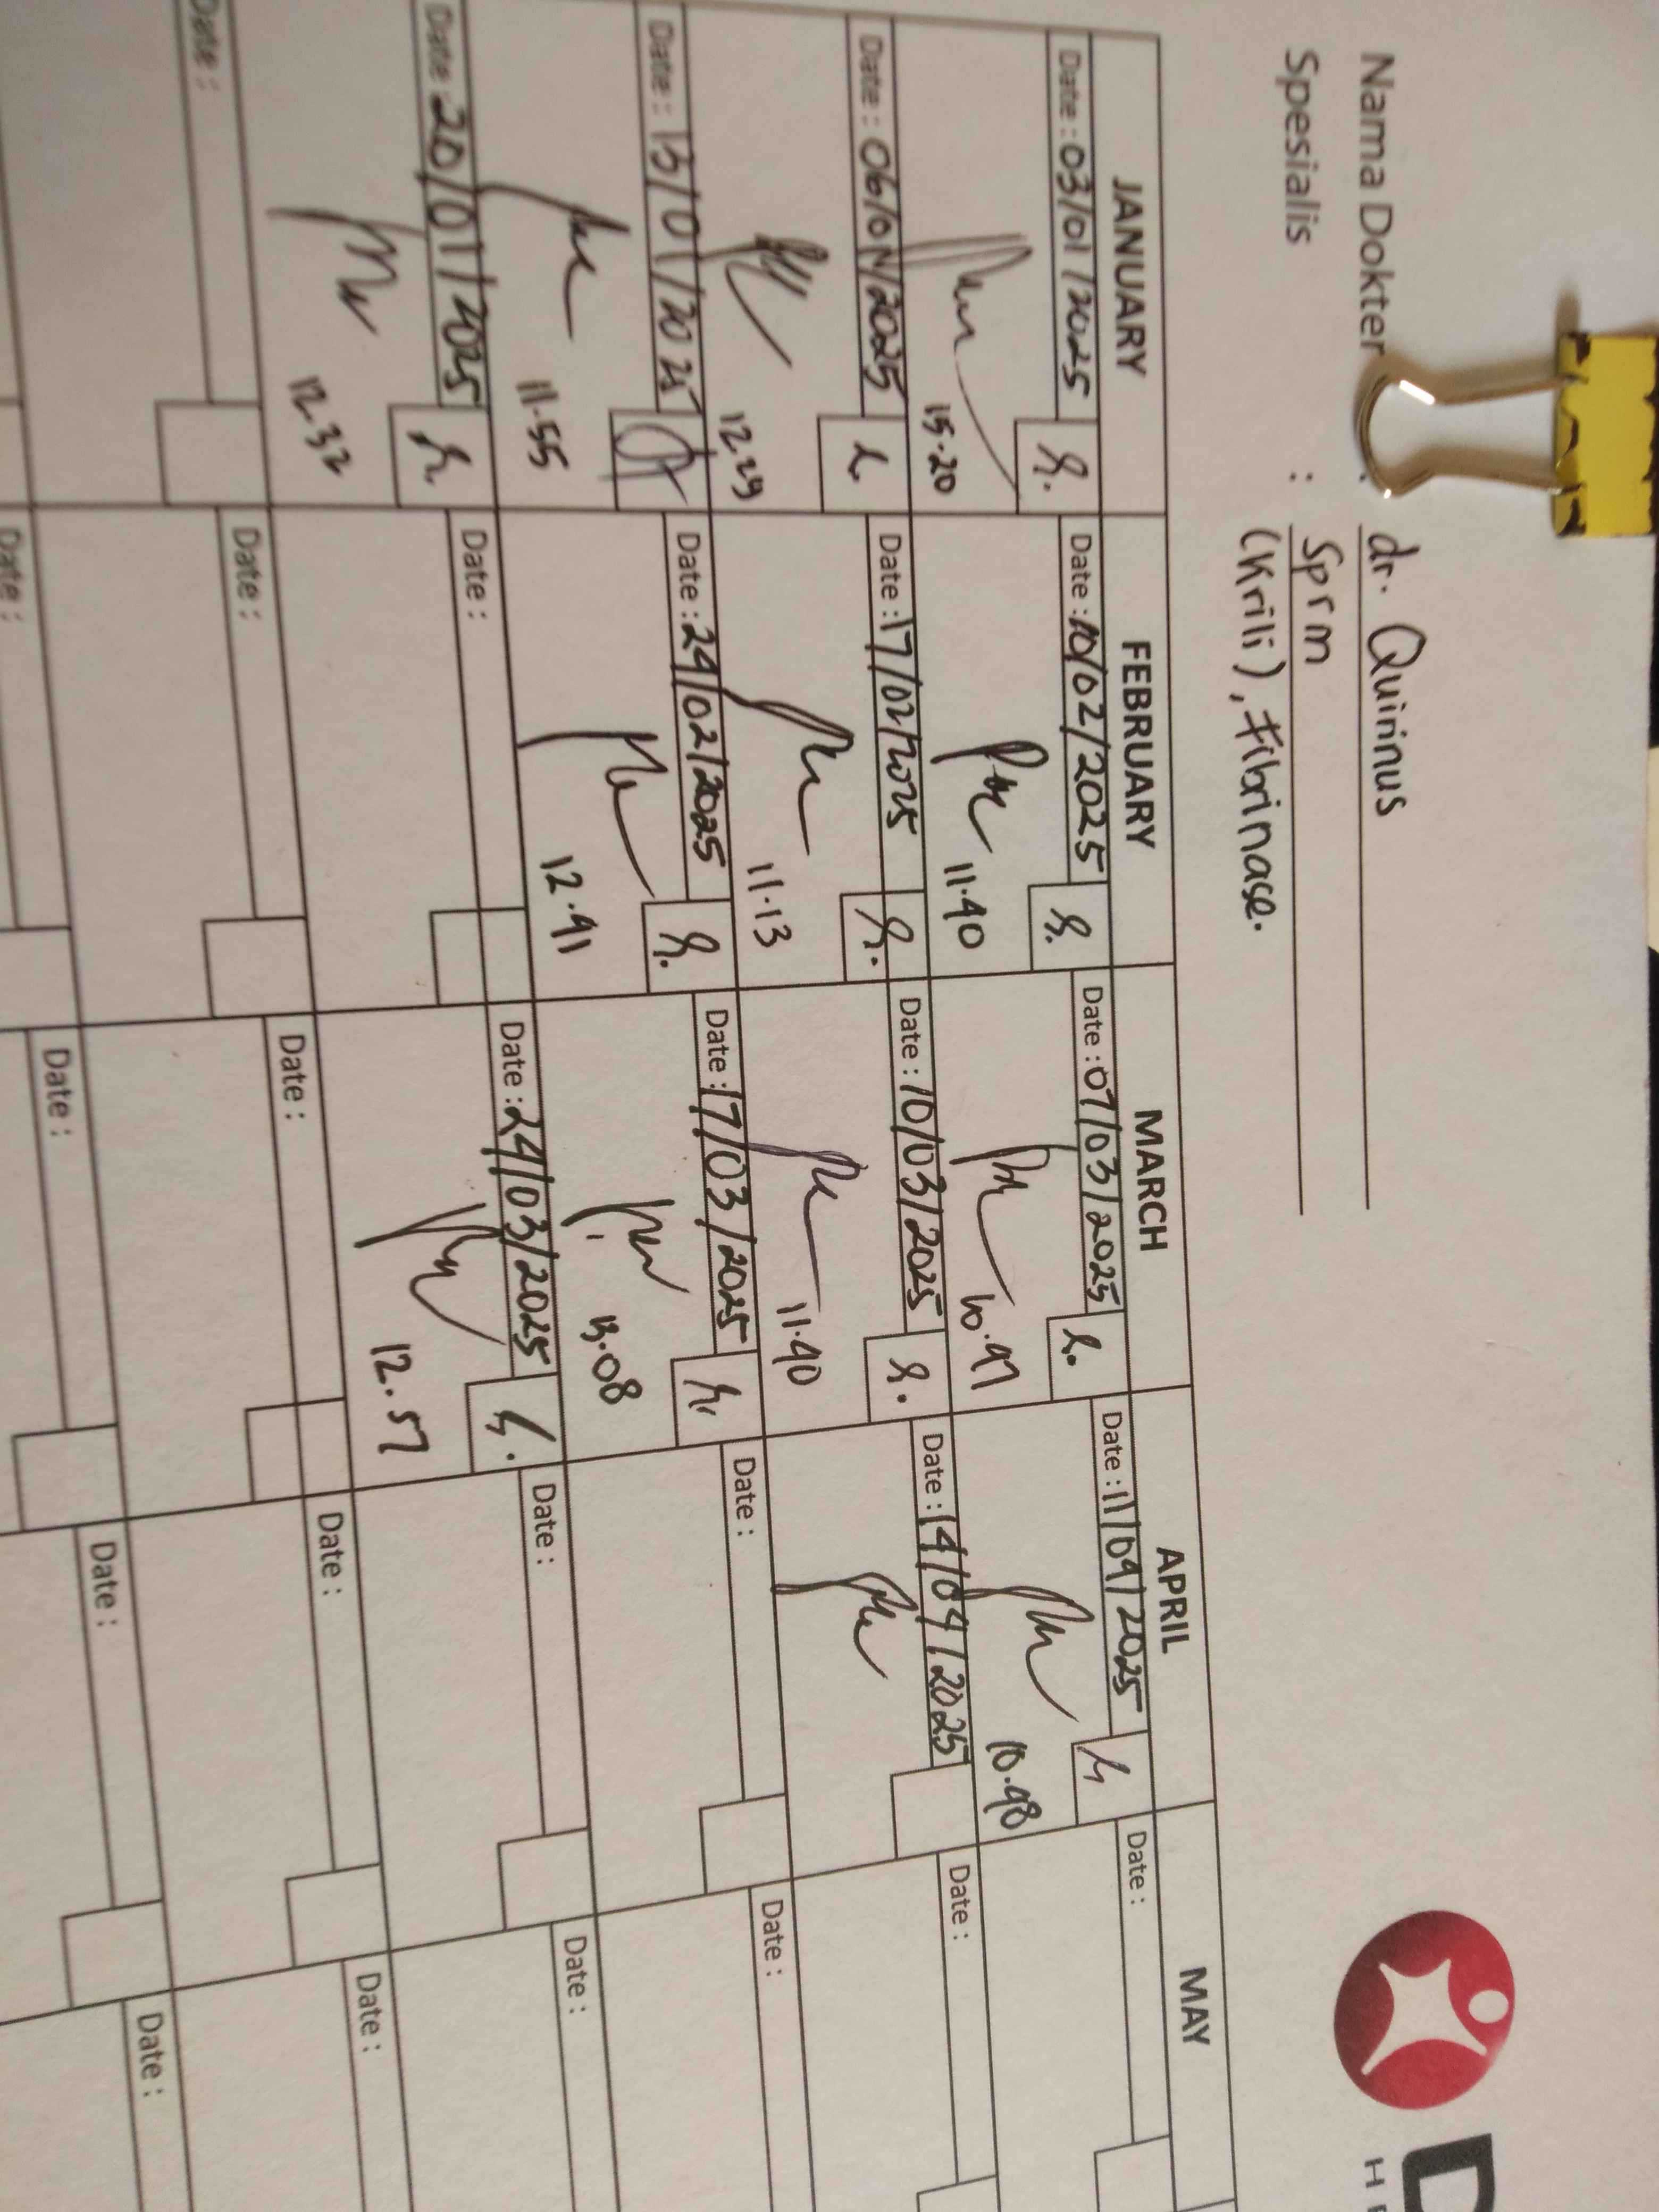 Nama Dokter : dr. Quirinus
Spesialis : Sprm
(Krili), Fibrinase.
D
H
JANUARY FEBRUARY MARCH APRIL MAY
Date : 03/01/2025 Date : 10/02/2025 Date : 07/03/2025 Date : 11/04/2025 Date :
15.20 11.40 10.47 10.48
Date : 06/01/2025 Date : 17/02/2025 Date : 10/03/2025 Date : 14/04/2025 Date :
12.29 11.13 11.40
Date : 13/01/2025 Date : 24/02/2025 Date : 17/03/2025 Date : Date :
11.55 12.41 13.08
Date : 20/01/2025 Date : Date : 24/03/2025 Date : Date :
12.32 12.57
Date : Date : Date : Date : Date :
Date : Date : Date : Date :